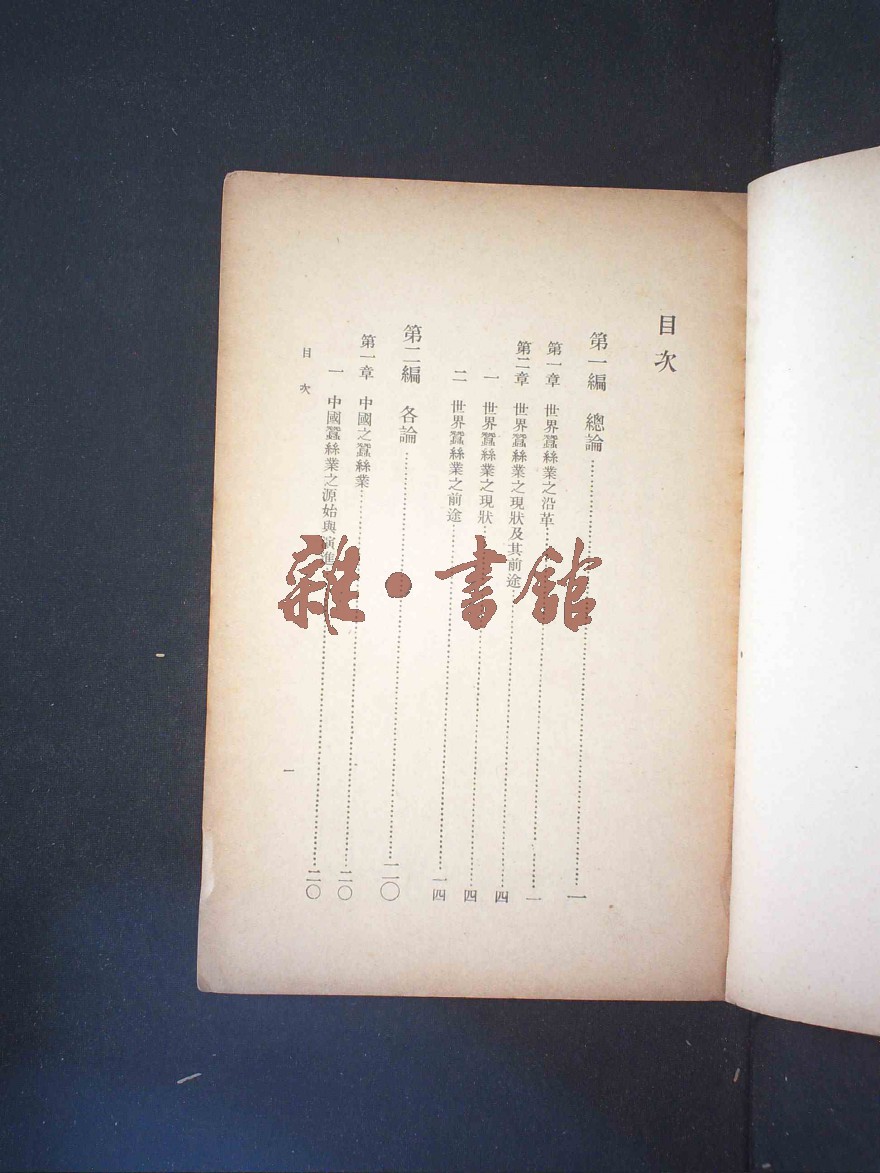 目次
第一編 總論……一
第一章 世界蠶絲業之沿革……一
第二章 世界蠶絲業之現狀及其前途……四
一 世界蠶絲業之現狀……四
二 世界蠶絲業之前途……一四
第二編 各論……二〇
第一章 中國之蠶絲業……二〇
一 中國蠶絲業之源始與演進……二〇
目次
一
雜·書館